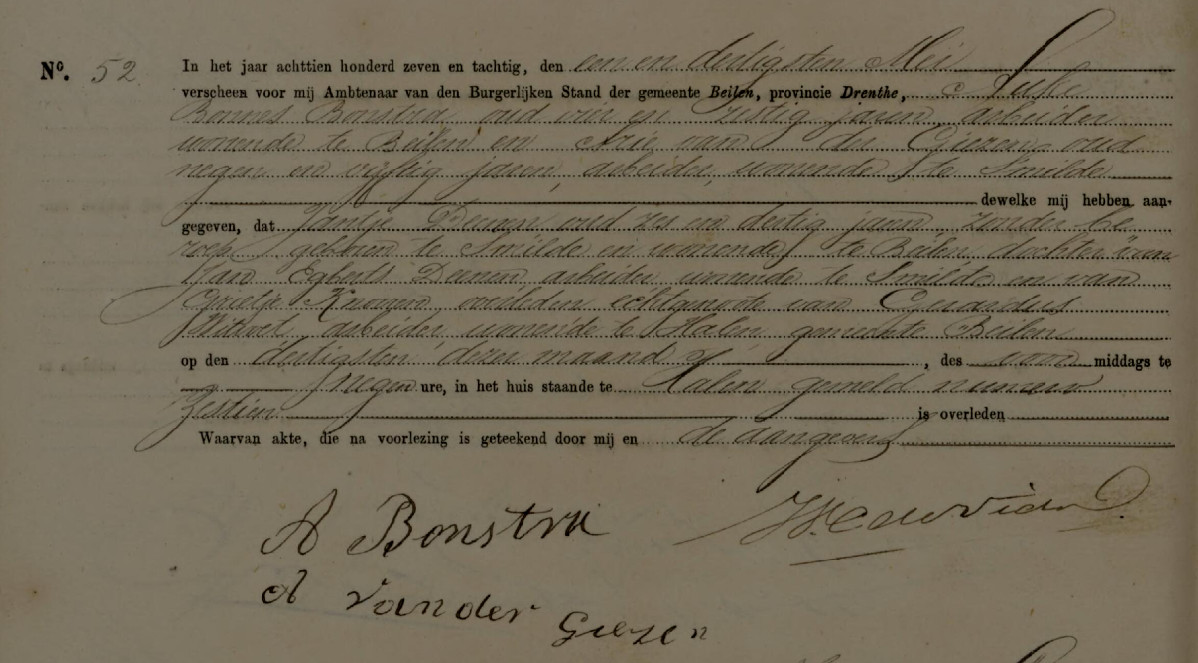 Nº. 52 In het jaar achttien honderd zeven en tachtig, den een en dertigsten Mei
verscheen voor mij Ambtenaar van den Burgerlijken Stand der gemeente Beilen, provincie Drenthe, Auke
Bonnes Bonstra oud vier en zestig jaren, arbeider
wonende te Beilen en Arie van der Giezen oud
negen en vijftig jaren, arbeider, wonende te Smilde
dewelke mij hebben aan-
gegeven, dat Jantje Deenen oud zes en dertig jaren, zonder be
roep, geboren te Smilde en wonende te Beilen, dochter van
Jan Egberts Deenen, arbeider wonende te Smilde en van
overleden echtgenoote van
arbeider, wonende te Halen gemeente Beilen
op den dertigsten dezer maand , des voor middags te
negen ure, in het huis staande te Halen gemeld nummer
zestien is overleden
Waarvan akte, die na voorlezing is geteekend door mij en de aangevers
A Bonstra
A van der Giezen